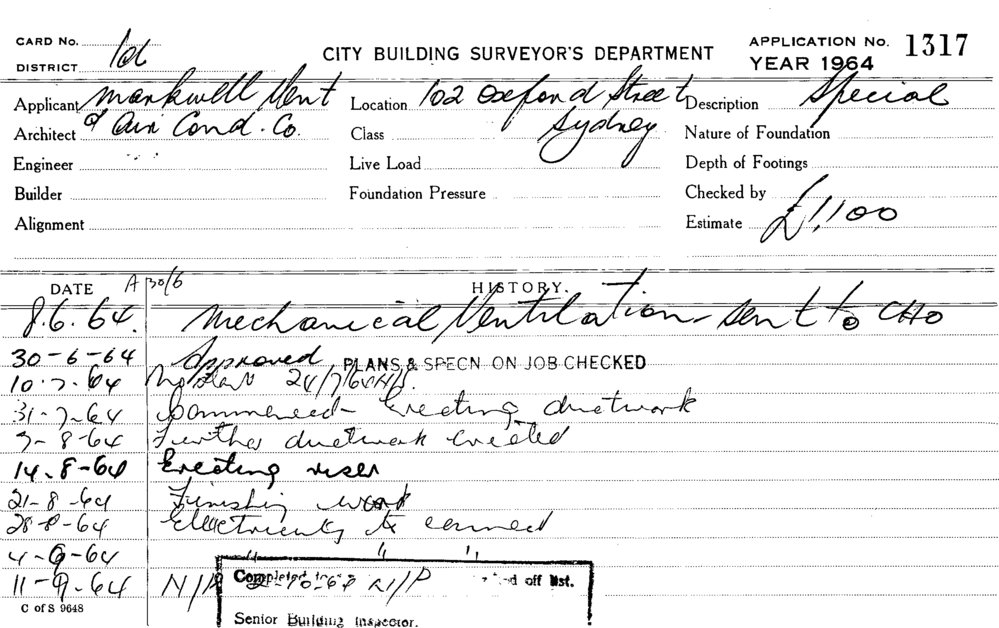 CARD No. 1d
DISTRICT
CITY BUILDING SURVEYOR'S DEPARTMENT
APPLICATION No. 1317
YEAR 1964
Applicant Markwell Vent
Location 102 Oxford Street
Description Special
Architect & Air Cond. Co.
Class Sydney
Nature of Foundation
Engineer
Live Load
Depth of Footings
Builder
Foundation Pressure
Checked by
Alignment
Estimate £1,100
DATE A 30/6 HISTORY.
8.6.64. Mechanical Ventilation sent to CHO
30-6-64 Approved PLANS & SPECN ON JOB CHECKED
10.7.64 24/7/64
31-7-64 Commenced - Erecting ductwork
7-8-64 Further ductwork erected
14-8-64 Erecting riser
21-8-64 Finishing work
28-8-64 Electricity to connect
4-9-64 " " "
11-9-64 N/P 2-10-64 N/P
Completed off list.
C of S 9648
Senior Building Inspector.